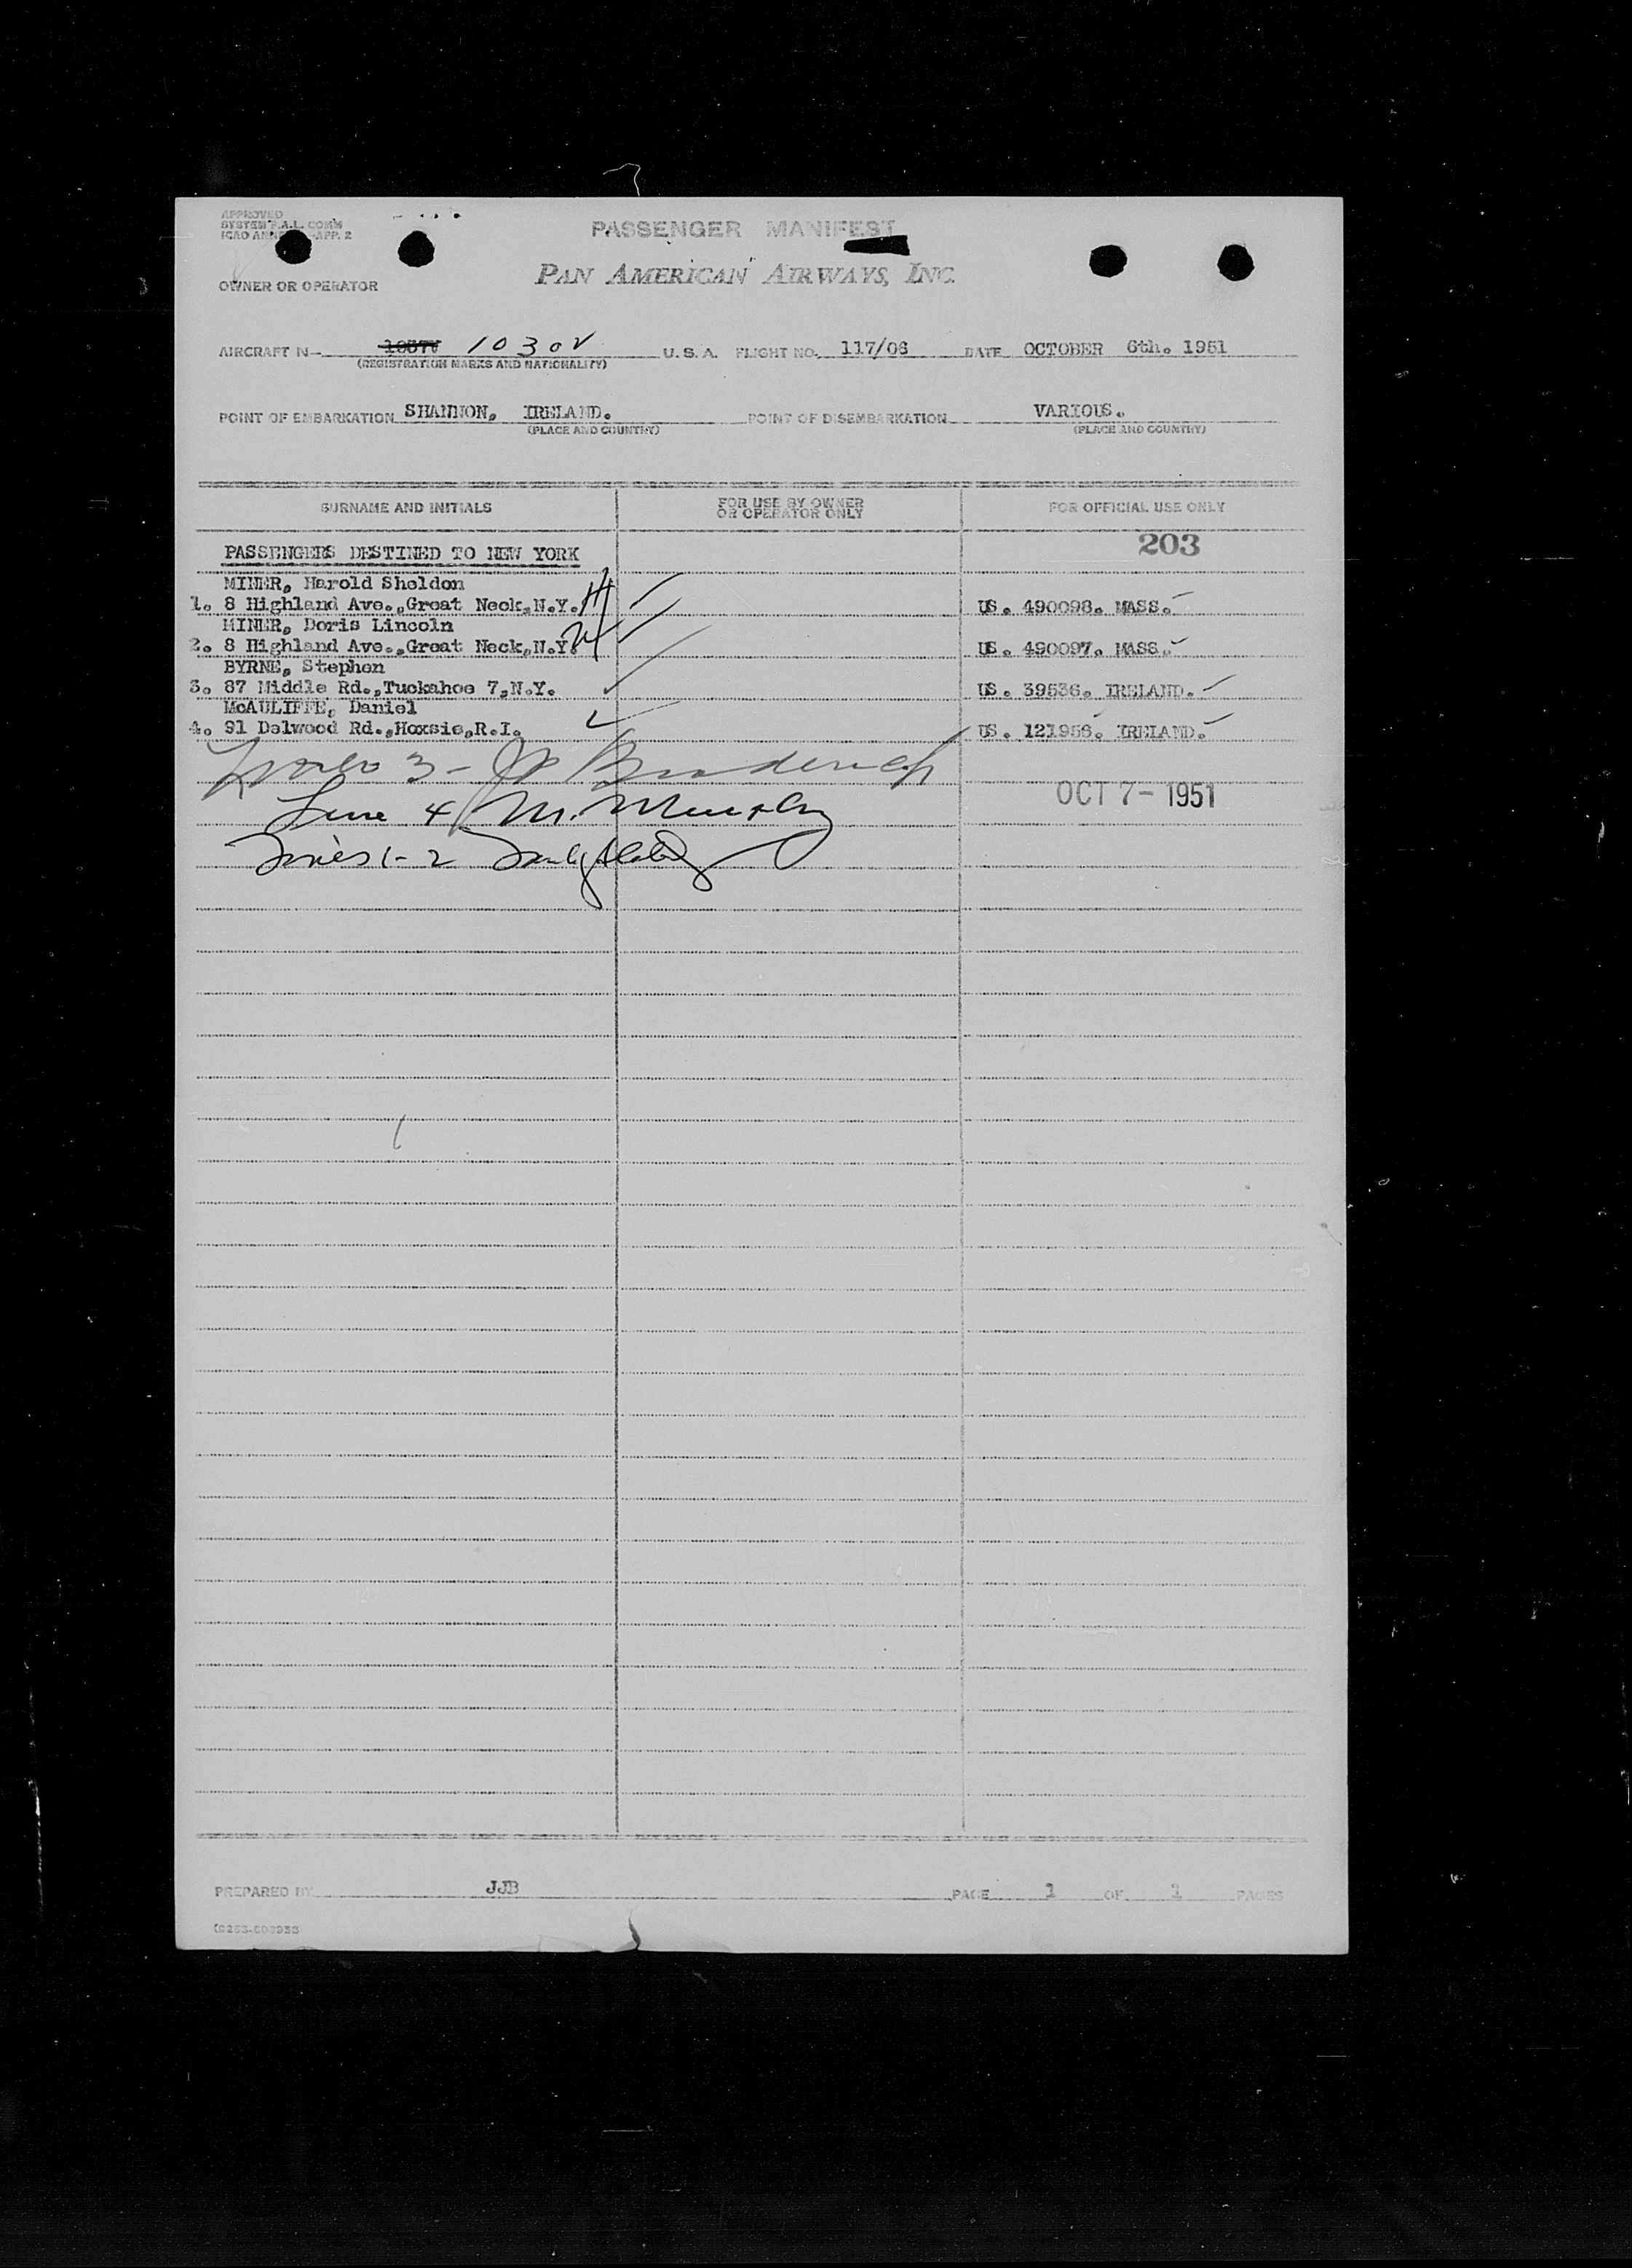 APPROVED
SYSTEM F.A.L. COMM
ICAO APP. 2
PASSENGER MANIFEST
PAN AMERICAN AIRWAYS, INC.
OWNER OR OPERATOR
AIRCRAFT N- 1030V U. S. A. FLIGHT NO. 117/06 DATE OCTOBER 6th. 1951
(REGISTRATION MARKS AND NATIONALITY)
POINT OF EMBARKATION SHANNON, IRELAND. POINT OF DISEMBARKATION VARIOUS.
(PLACE AND COUNTRY) (PLACE AND COUNTRY)
SURNAME AND INITIALS FOR USE BY OWNER OR OPERATOR ONLY FOR OFFICIAL USE ONLY
PASSENGERS DESTINED TO NEW YORK 203
MINER, Harold Sheldon
1. 8 Highland Ave.,Great Neck,N.Y. US. 490098. MASS.
MINER, Doris Lincoln
2. 8 Highland Ave.,Great Neck,N.Y. US. 490097. MASS.
BYRNE, Stephen
3. 87 Middle Rd.,Tuckahoe 7,N.Y. US. 39536. IRELAND.
McAULIFFE, Daniel
4. 91 Delwood Rd.,Hoxsie,R.I. US. 121956. IRELAND.
3 - JP Broderick
OCT 7- 1951
Line 4 M. Murphy
Lines 1-2
PREPARED BY JJB PAGE 1 OF 1 PAGES